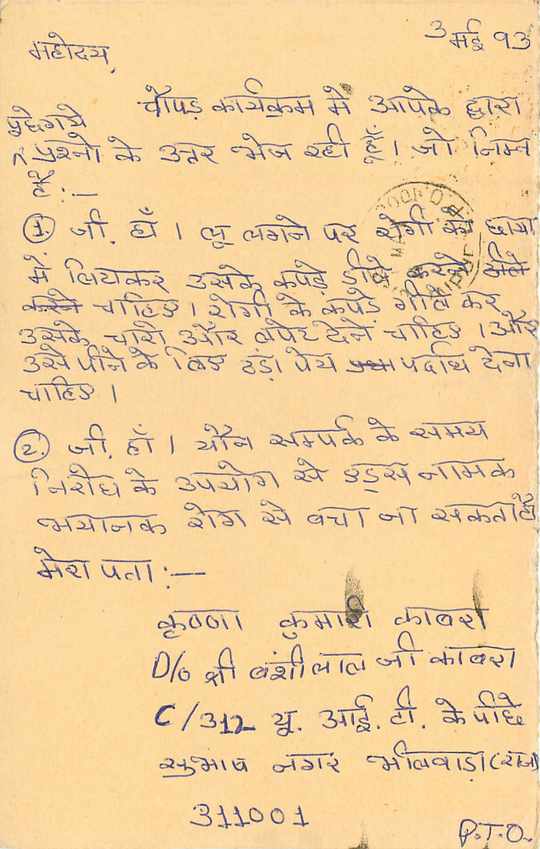 3 मई 93
महोदय,
चौपड़ कार्यक्रम में आपके द्वारा
पूछे गये
प्रश्नो के उत्तर भेज रही हूँ। जो निम्न
है:—
1. जी. हाँ। लू लगने पर रोगी को छाया
में लिटाकर उसके कपड़े ढीले करने
चाहिए। रोगी के कपड़े गीले कर
उसके चारो और लपेट देने चाहिए। और
उसे पीने के लिए ठंडा पेय पदार्थ देना
चाहिए।
2. जी. हाँ। यौन सम्पर्क के समय
निरोध के उपयोग से एड्स नामक
भयानक रोग से बचा जा सकता है
मेरा पता:—
कृष्णा कुमारी काबरा
D/o श्री बंशीलाल जी काबरा
C/312 यू. आई. टी. के पीछे
सुभाष नगर भीलवाड़ा (राज)
311001
P.T.O.